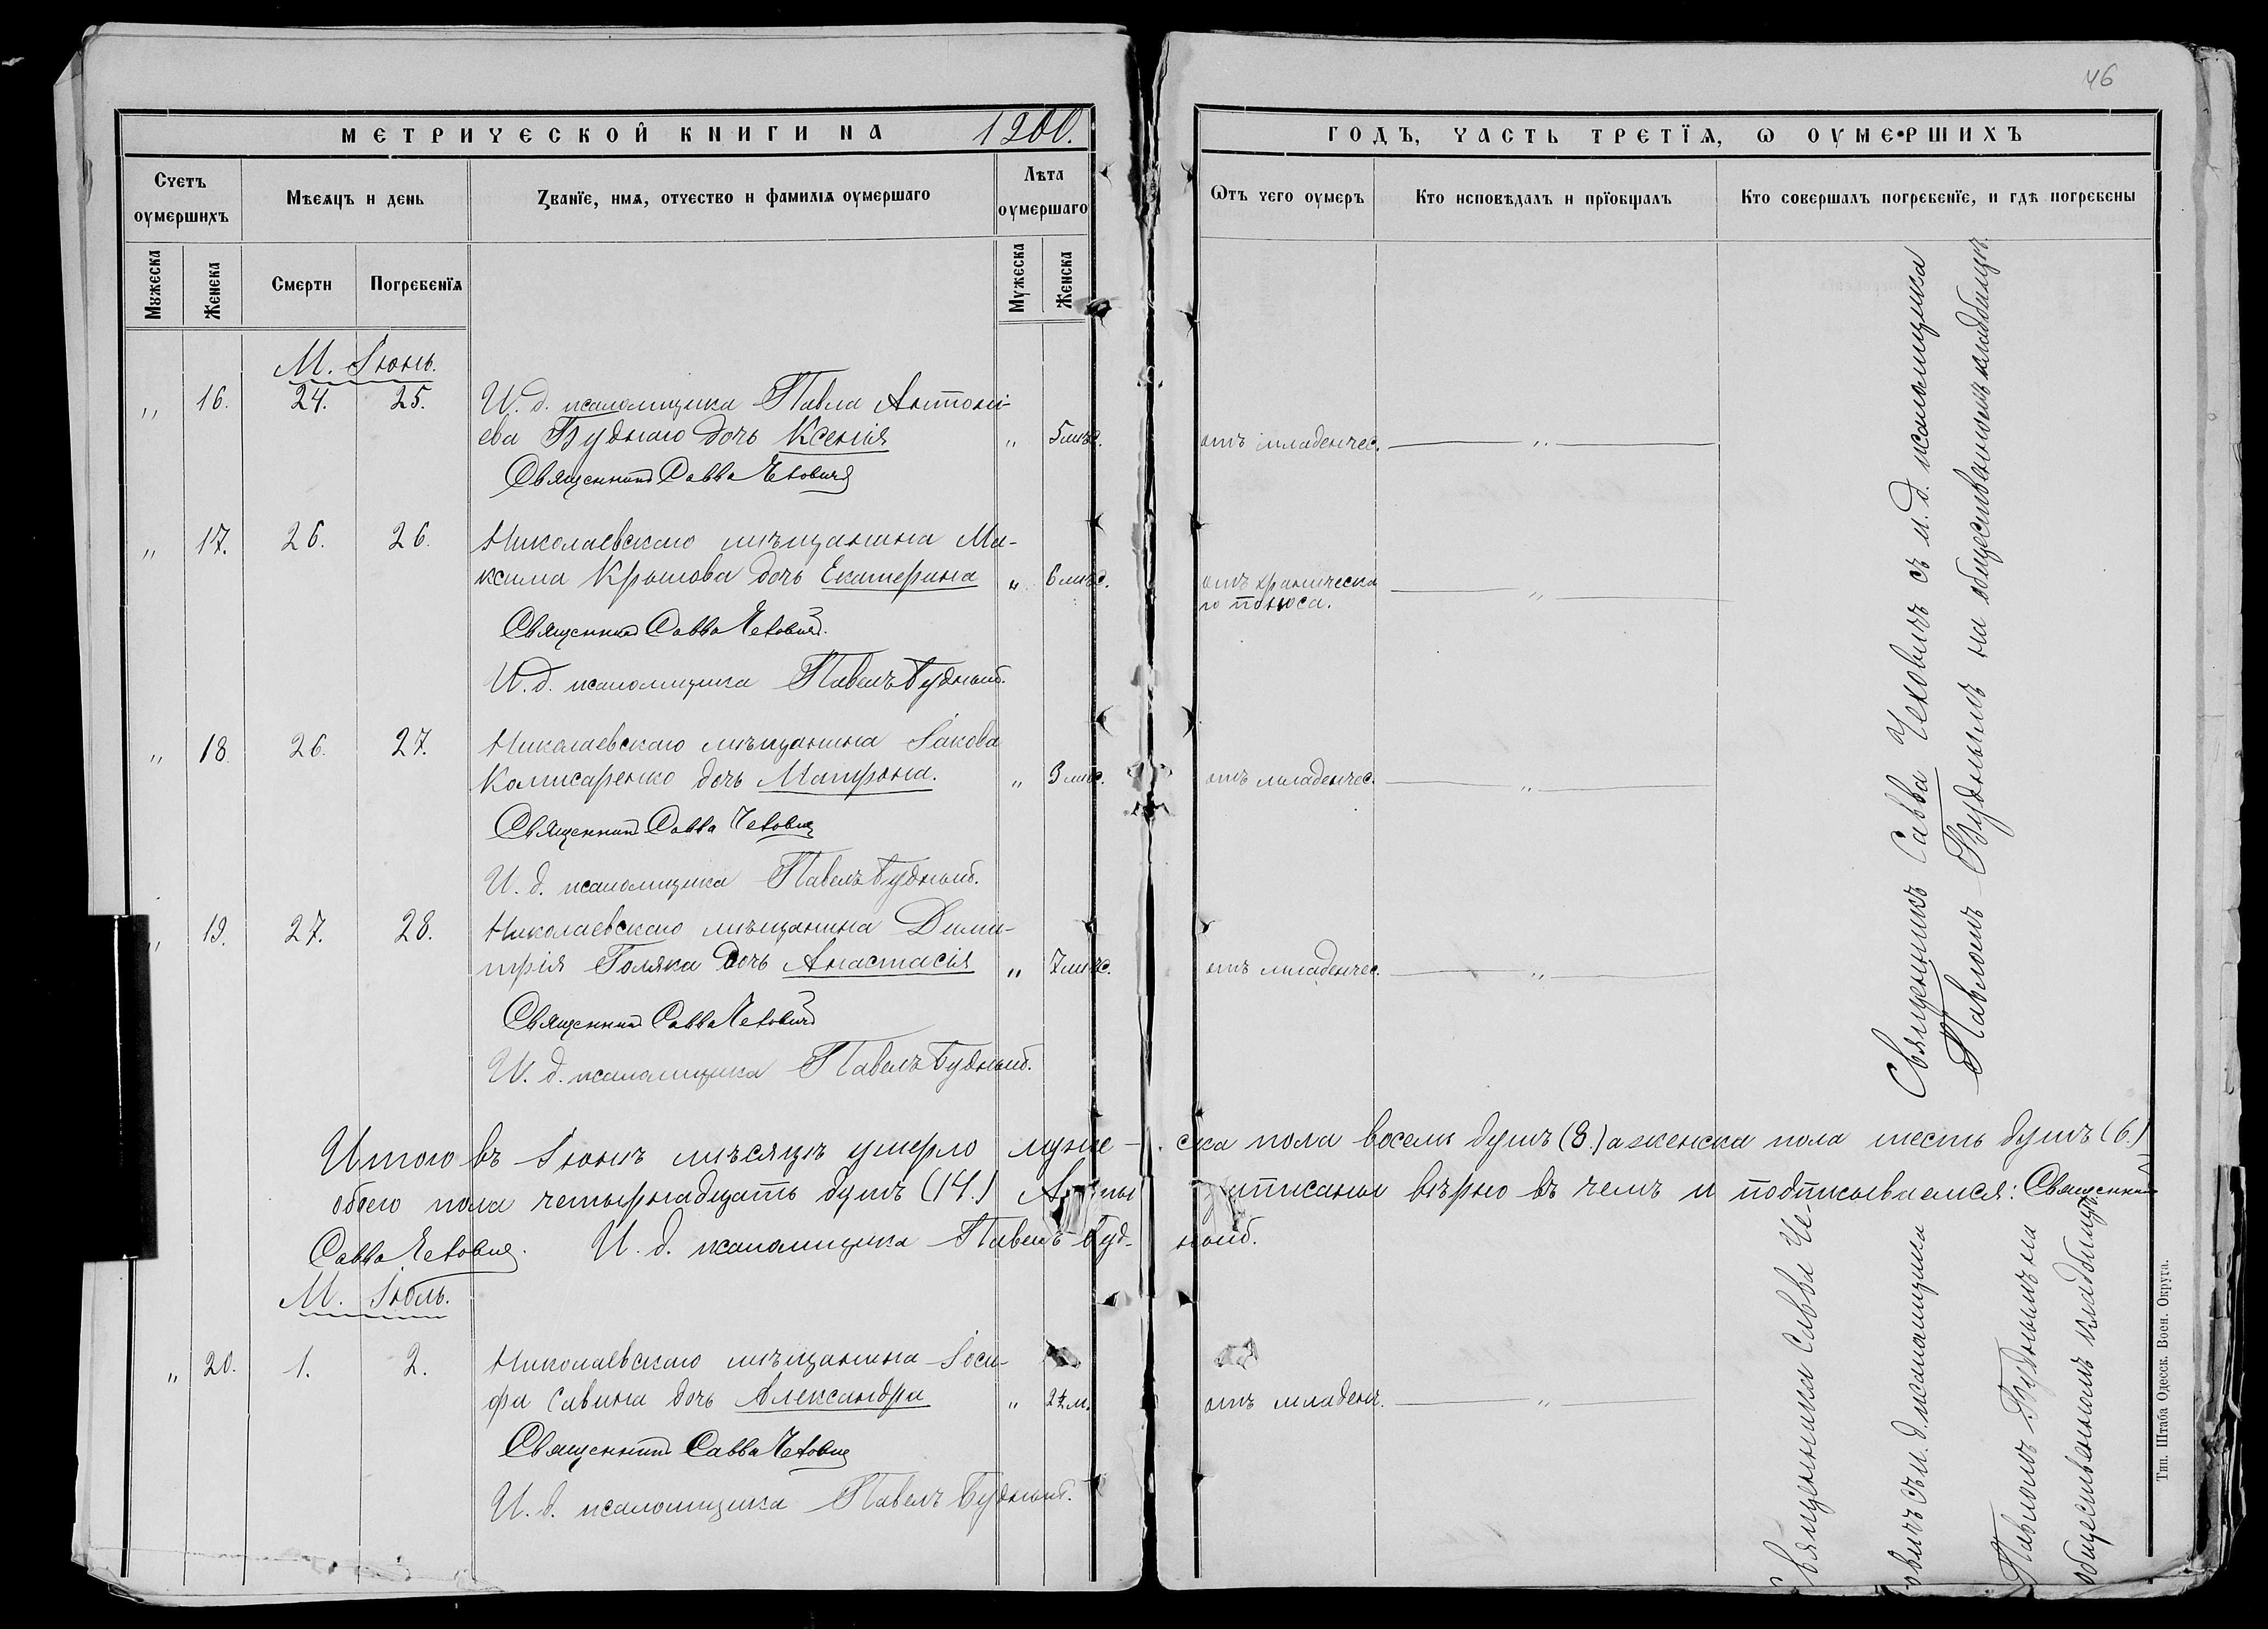 46
МЕТРИЧЕСКОЙ КНИГИ НА 1900.
Счетъ оумершихъ
Мѣсяцъ и день
Званїе, имя, отчество и фамилїя оумершаго
Лѣта оумершаго
Мужеска
Женска
Смерти
Погребенїя
Мужеска
Женска
М. Іюнь.
„ 16. 24. 25. И. д. псаломщика Павла Антоні-
ева Буднаго дочь Ксенія „ 5 мѣс.
Священникъ Савва Чеховичъ
„ 17. 26. 26. Николаевскаго мѣщанина Ма-
ксима Крымова дочь Екатерина „ 6 мѣс.
Священникъ Савва Чеховичъ.
И. д. псаломщика Павелъ Будный.
„ 18. 26. 27. Николаевскаго мѣщанина Іакова
Комисаренко дочь Матрона. „ 3 мѣс.
Священникъ Савва Чеховичъ
И. д. псаломщика Павелъ Будный.
„ 19. 27. 28. Николаевскаго мѣщанина Дими-
трія Голяка дочь Анастасія „ 7 мѣс.
Священникъ Савва Чеховичъ
И. д. псаломщика Павелъ Будный.
Итого въ Іюнѣ мѣсяцѣ умерло муже-
обоего пола четырнадцать душъ (14.)
Савва Чеховичъ. И. д. псаломщика Павелъ Буд-
М. Іюль.
„ 20. 1. 2. Николаевскаго мѣщанина Іоси-
фа Савина дочь Александра „ 2½ м.
Священникъ Савва Чеховичъ
И. д. псаломщика Павелъ Будный.
ГОДЪ, ЧАСТЬ ТРЕТЇЯ, Ѡ ОУМЕРШИХЪ
Ѿтъ чего оумеръ
Кто исповѣдалъ и прїобщалъ
Кто совершалъ погребенїе, и гдѣ погребены
отъ младенчес. „
отъ хроническа
го поноса. „
отъ младенчес. „
отъ младенчес. „
Священникъ Савва Чеховичъ съ и. д. псаломщика
Павломъ Буднымъ на общественномъ кладбищѣ.
ска пола восемь душъ (8.) а женска пола шесть душъ (6.)
писаны вѣрно въ чемъ и подписываемся: Священникъ
ный.
отъ младенч. „
Священника Савва Че-
ховичъ съ и. д. псаломщика
Павломъ Буднымъ на
общественномъ кладбищѣ.
Тип. Штаба Одесск. Воен. Округа.